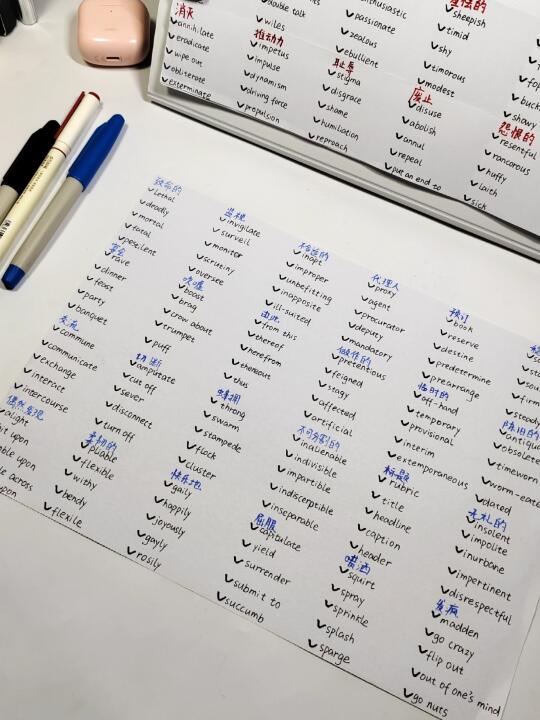 消灭
annihilate
eradicate
wipe out
obliterate
exterminate
double talk
wiles
推动力
impetus
impulse
dynamism
driving force
propulsion
passionate
zealous
ebullient
耻辱
stigma
disgrace
shame
humiliation
reproach
sheepish
timid
shy
timorous
modest
废止
disuse
abolish
annul
repeal
put an end to
showy
怨恨的
resentful
rancorous
huffy
laith
sick
致命的
lethal
deadly
mortal
fatal
pestilent
宴会
rave
dinner
feast
party
banquet
交流
commune
communicate
exchange
interact
intercourse
偶然发现
alight
upon
across
upon
监视
invigilate
surveil
monitor
scrutiny
oversee
吹嘘
boast
brag
crow about
trumpet
puff
切断
amputate
cut off
sever
disconnect
turn off
柔韧的
pliable
flexible
withy
bendy
flexile
不合适的
inapt
improper
unbefitting
inapposite
ill-suited
由此
from this
thereof
herefrom
thereout
thus
蜂拥
throng
swarm
stampede
flock
cluster
快乐地
gaily
happily
joyously
gayly
rosily
代理人
proxy
agent
procurator
deputy
mandatory
做作的
pretentious
feigned
stagy
affected
artificial
不可分割的
inalienable
indivisible
impartible
indiscerptible
inseparable
屈服
capitulate
yield
surrender
submit to
succumb
预订
book
reserve
destine
predetermine
prearrange
临时的
off-hand
temporary
provisional
interim
extemporaneous
标题
rubric
title
headline
caption
header
喷洒
squirt
spray
sprinkle
splash
sparge
陈旧的
obsolete
timeworn
worm-eate
dated
无礼的
insolent
impolite
inurbane
impertinent
disrespectful
发疯
madden
go crazy
flip out
out of one's mind
go nuts